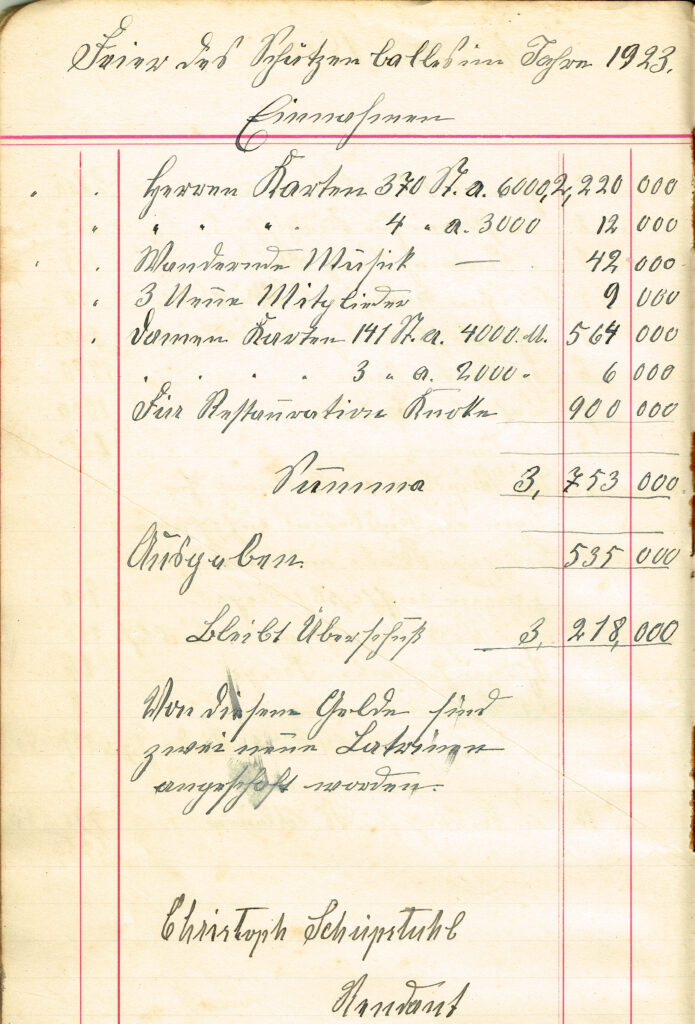 Feier des Schützenballes im Jahre 1923.
Einnahmen
" . Herren Karten 370 St. a. 6000, 2,220 000
" " " " " 4 " a. 3000 12 000
" . Wandernde Musick — 42 000
" 3 Neue Mitglieder 9 000
" Damen Karten 141 St. a. 4000. M. 564 000
" " " " 3 " a. 2000 " 6 000
Für Restauration Knoke 900 000
Summa 3, 753 000
Ausgaben 535 000
Bleibt Überschuß 3, 218, 000
Von diesem Gelde sind
zwei neue Latrinen
angeschaft worden.
Christoph Schüpstuhl
Rendant